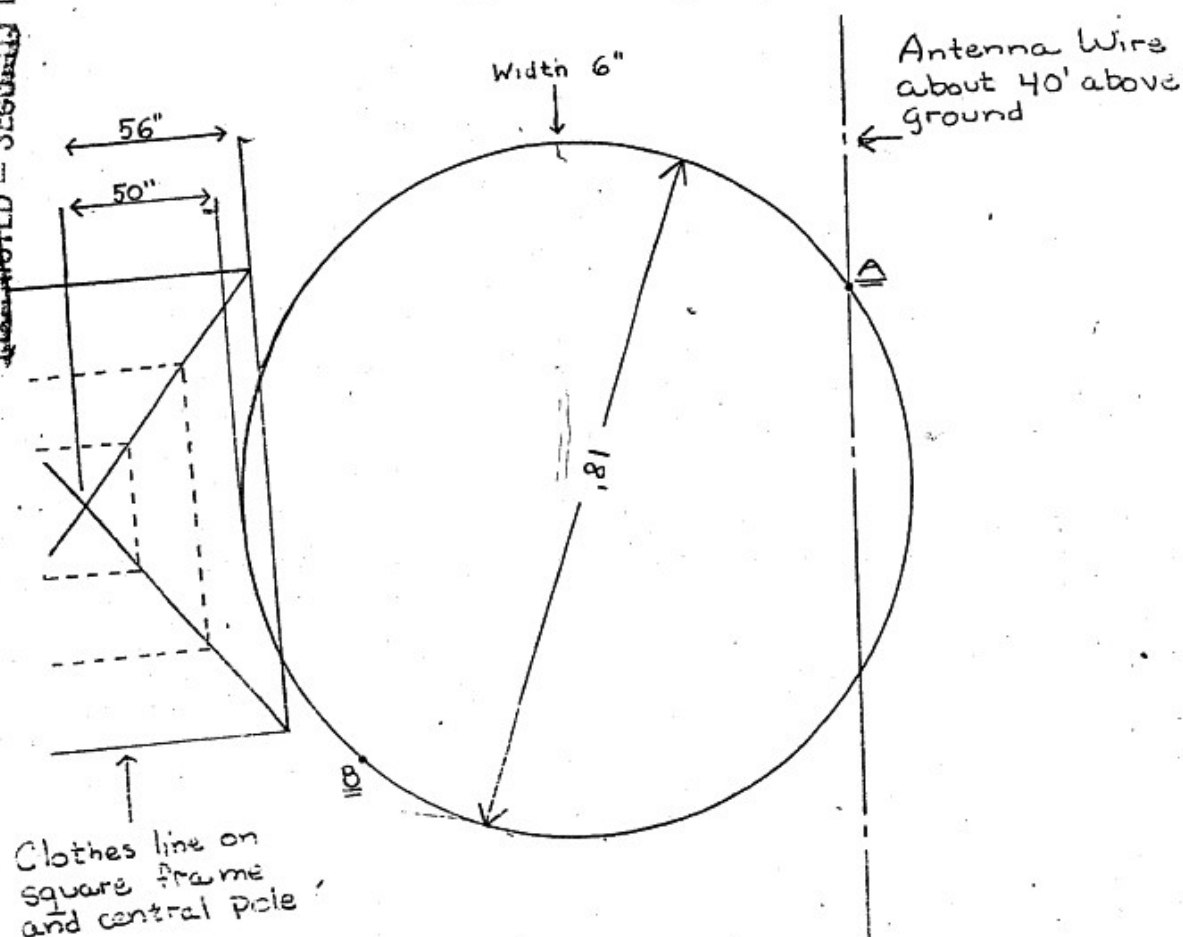 Width 6"
Antenna Wire
about 40' above
ground
56"
50"
A
18'
B
Clothes line on
square frame
and central pole